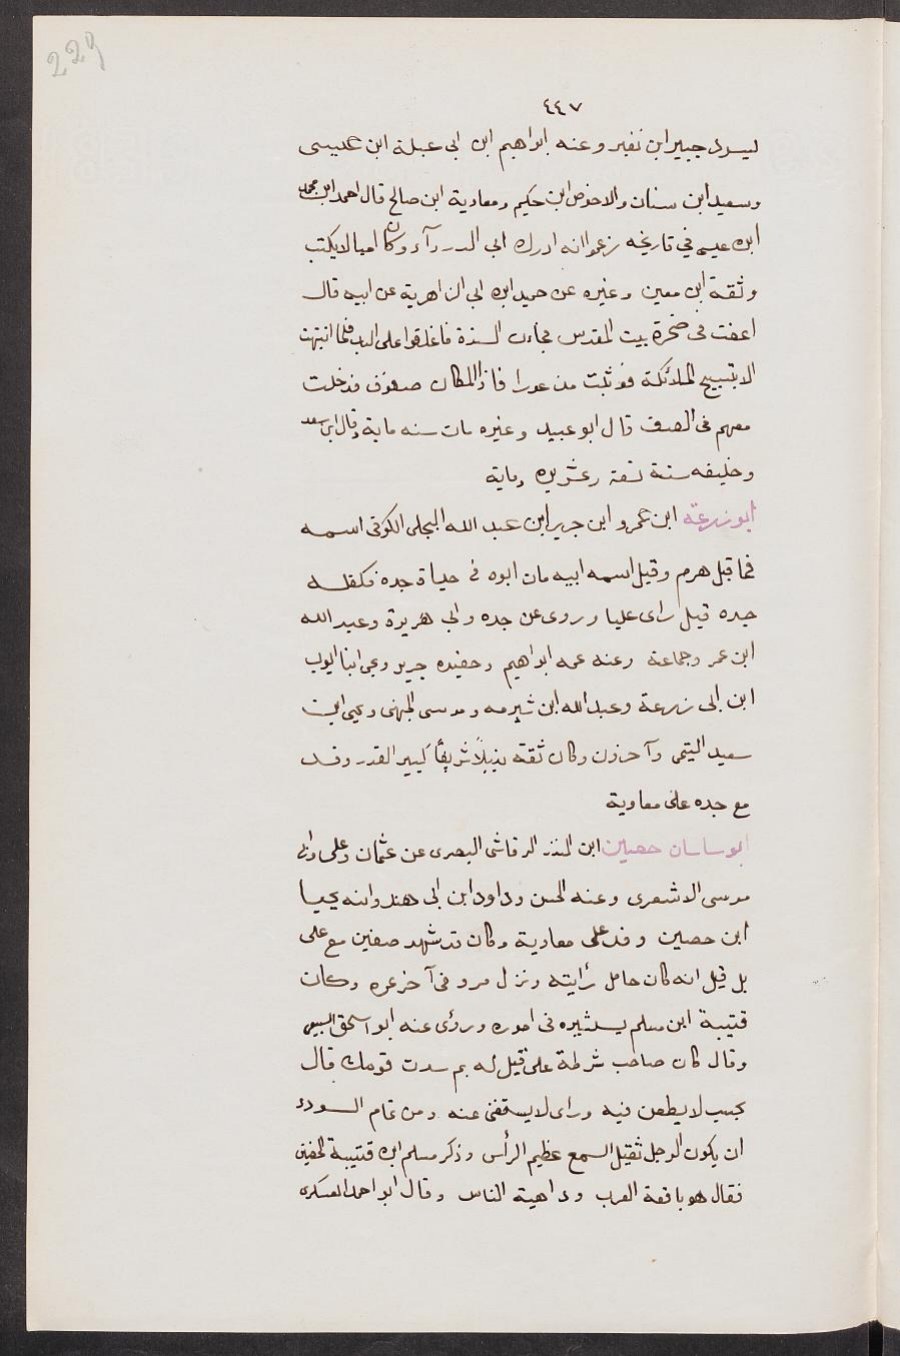 229
٤٤٧
جبير ابن نفير وعنه ابراهيم ابن ابى عبلة ابن عيسى
وسعيد ابن سنان والاحوص ابن حكيم ومعاوية ابن صالح قال احمد ابن محمد
ابن عيسى في تاريخه زعموا انه ادرك ابي الدردآء وكان اميا لا يكتب
وثقة ابن معين وغيره عن حميد ابن ابي الزاهرية عن ابيه قال
اعفت فى صخرة بيت المقدس فجاءت السدنة فاغلقوا على الباب فما انتبهت
الا بتسبيح الملائكة فوثبت مذعورا فاذا المكان صفوف فدخلت
معهم فى الصف قال ابو عبيد وغيره مات سنه ماية وقال ابن سعد
وخليفه سنة تسعة وعشرين وماية
ابو زرعة ابن عمرو ابن جرير ابن عبد الله البجلى الكوفى اسمه
فما قيل هرم وقيل اسمه ابيه مات ابوه فى حياة جده فكفله
جده قيل راى عليا وروى عن جده وابي هريرة وعبد الله
ابن عمر وجماعة وعنه عمه ابراهيم وحفيده جرير ويحى ابنا ايوب
ابن ابى زرعة وعبد الله ابن شبرمه وموسى الجهنى ويحيى ابن
سعيد التيمى وآخرون وكان ثقة نبيلاً شريفاً كبير القدر وفد
مع جده على معاوية
ابو ساسان حصين ابن المنذر الرقاشى البصرى عن عثمان وعلى وابى
موسى الاشعرى وعنه الحسن وداود ابن ابى هند وابنه يحيا
ابن حصين وفد على معاوية وكان قد شهد صفين مع على
بل قيل انه كان حامل رأيته ونزل مرو فى آخر عمره وكان
قتيبة ابن مسلم يستشيره فى اموره وروى عنه ابو اسحق السبيعى
وقال كان صاحب شرطة على قيل له بم سدت قومك قال
بحسب لا يطعن فيه وراى لا يستغنى عنه ومن تمام السودد
ان يكون الرجل ثقيل السمع عظيم الرأس وذكر مسلم ابن قتيبة الحضين
فقال هو باقعة العرب وداهية الناس وقال ابو احمد العسكرى